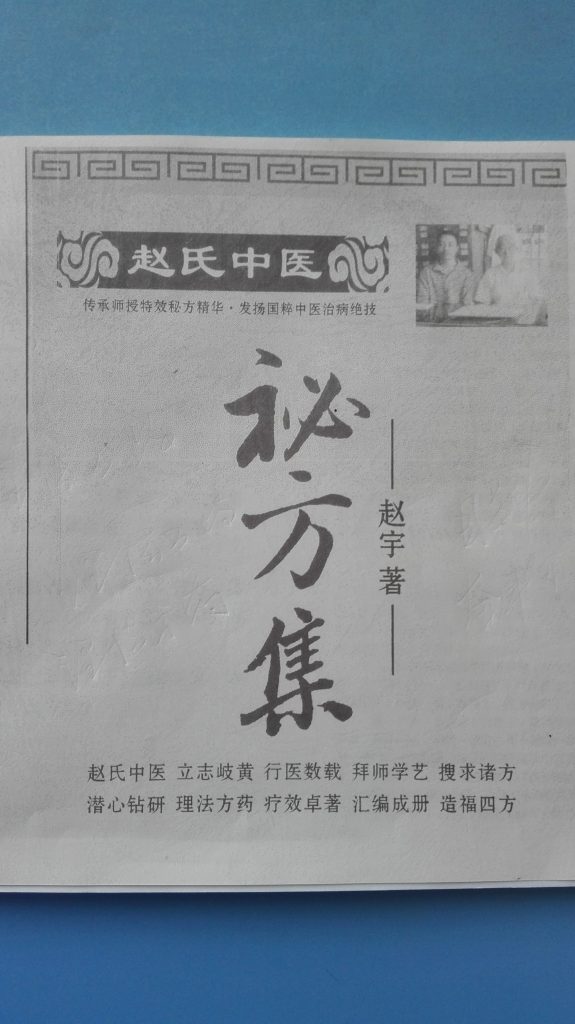 赵氏中医
传承师授特效秘方精华·发扬国粹中医治病绝技
秘方集
赵宇 著
赵氏中医 立志岐黄 行医数载 拜师学艺 搜求诸方
潜心钻研 理法方药 疗效卓著 汇编成册 造福四方